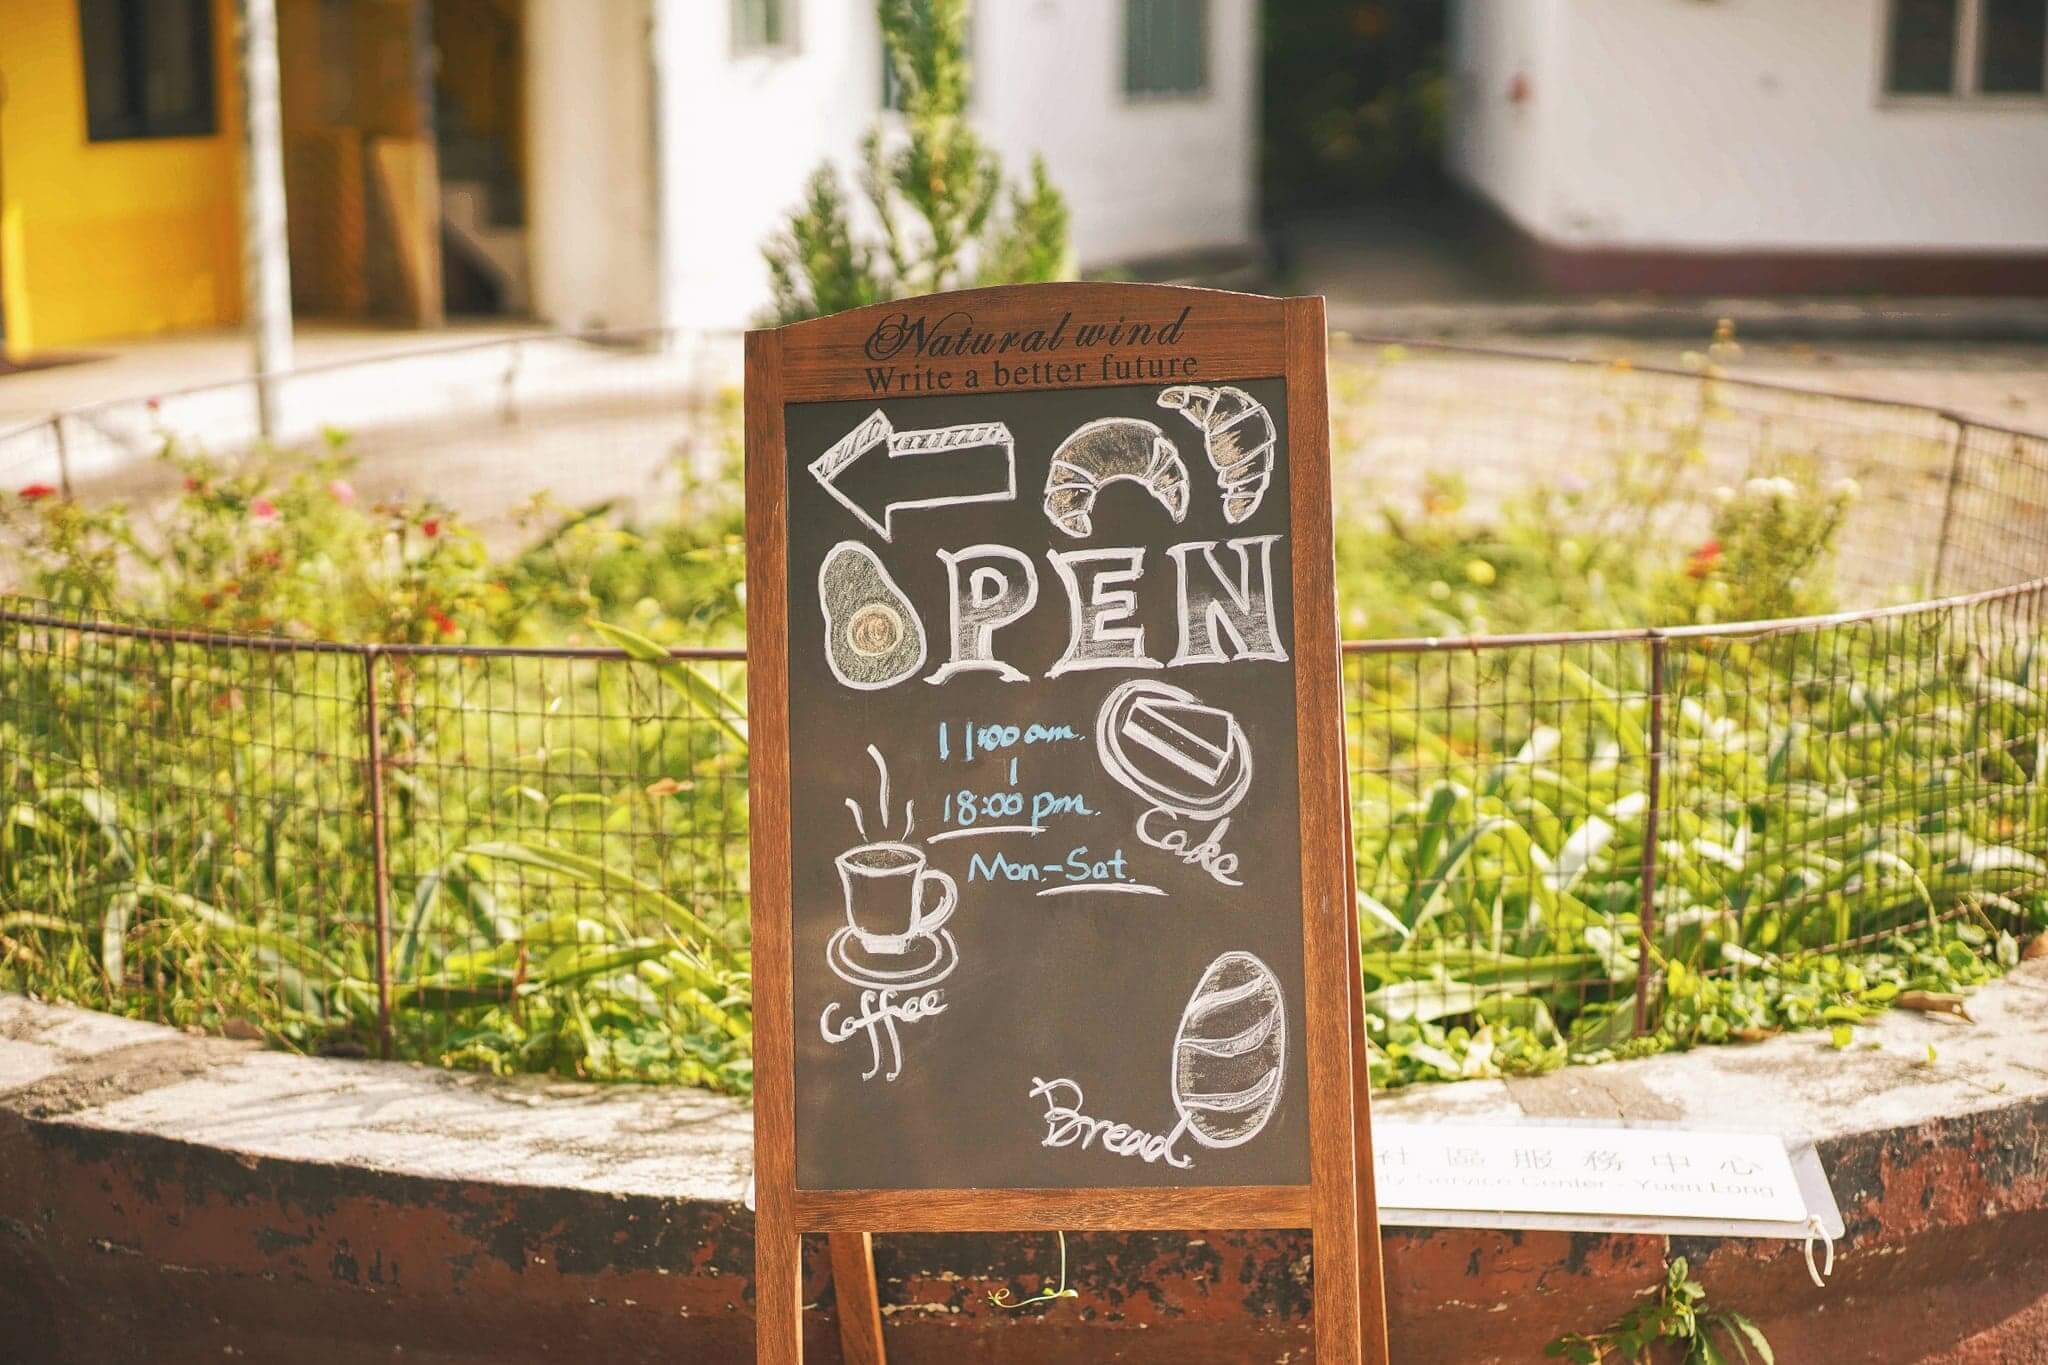 Natural wind
Write a better future
OPEN
11:00 am.
|
18:00 pm.
Cake
Mon.-Sat.
Coffee
Bread
社區服務中心
Service Center - Yuen Long